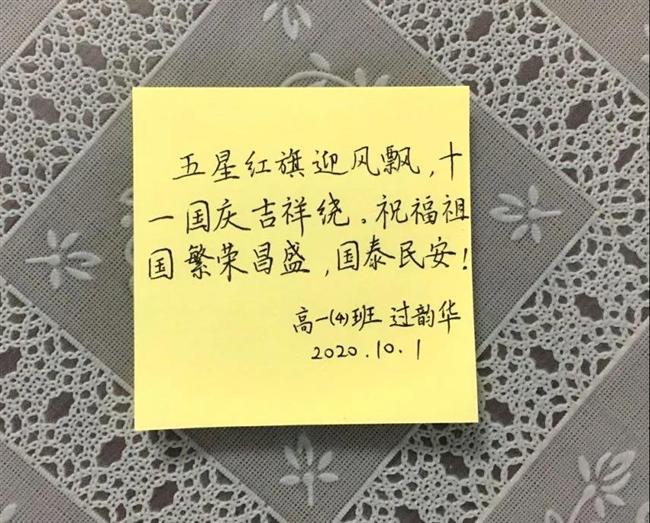 五星红旗迎风飘,十
一国庆吉祥绕。祝福祖
国繁荣昌盛,国泰民安!
高一(4)班 过韵华
2020.10.1